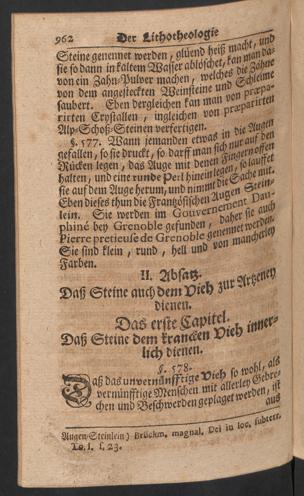 962 Der Lithotheologie
Steine genennet werden, glüend heiß macht, und
sie so dann in kaltem Wasser ablöschet, kan man da-
von ein Zahn-Pulver machen, welches die Zähne
von dem angesteckten Weinsteine und Schleime
saubert. Eben dergleichen kan man von præpa-
rirten Crystallen, ingleichen von præparirten
Alp-Schoß-Steinen verfertigen.
§. 577. Wann jemanden etwas in die Augen
gefallen, so sie druckt, so darff man sich nur auf den
Rücken legen, das Auge mit denen Fingern offen
halten, und eine runde Perl hinein legen, so laufft
sie auf dem Auge herum, und nimmt die Sache mit.
Eben dieses thun die Frantzösischen Augen Stein-
lein. Sie werden im Gouvernement Dau-
phiné bey Grenoble gefunden, daher sie auch
Pierre pretieuse de Grenoble genennet werden.
Sie sind klein, rund, hell und von mancherley
Farben.
II. Absatz.
Daß Steine auch dem Vieh zur Artzeney
dienen.
Das erste Capitel.
Daß Steine dem krancken Vieh inner-
lich dienen.
§. 578.
Daß das unvernünfftige Vieh so wohl, als
vernünfftige Menschen mit allerley Gebre-
chen und Beschwerden geplaget werden, ist
aus
Augen-Steinlein) Brückm. magnal. Dei in loc. subterr.
To. I. f. 23.